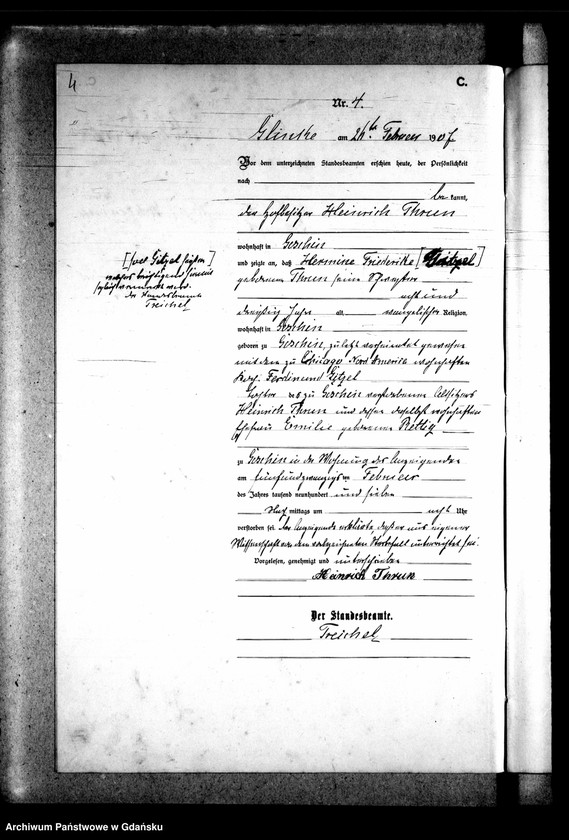 4
C.
Nr. 4.
Glincke am 26ten Februar 1907
Vor dem unterzeichneten Standesbeamten erschien heute, der Persönlichkeit
nach
be kannt,
der Hofbesitzer Heinrich Thrun
wohnhaft in Goschin
und zeigte an, daß Hermine Friederike
geborene Thrun seine Schwester
acht und
dreißig Jahre alt, evangelischer Religion,
wohnhaft in Goschin
geboren zu Goschin, zuletzt verheiratet gewesen
mit dem zu Chicago Nord America wohnhaften
Ferdinand Gitzel
Tochter des zu Goschin verstorbenen Altsitzers
Heinrich Thrun und dessen daselbst wohnhaften
Ehefrau Emilie geborenen Rettig
zu Goschin in der Wohnung des Anzeigenden
am fünfundzwanzigsten Februar
des Jahres tausend neunhundert und sieben
Nach mittags um acht Uhr
verstorben sei. Der Anzeigende erklärte, daß er aus eigener
Wissenschaft von dem vorbezeichneten Sterbefall unterrichtet sei.
Vorgelesen, genehmigt und unterschrieben
Heinrich Thrun
Der Standesbeamte.
Treichel
Gitzel
Der Standesbeamte
Treichel
Archiwum Państwowe w Gdańsku